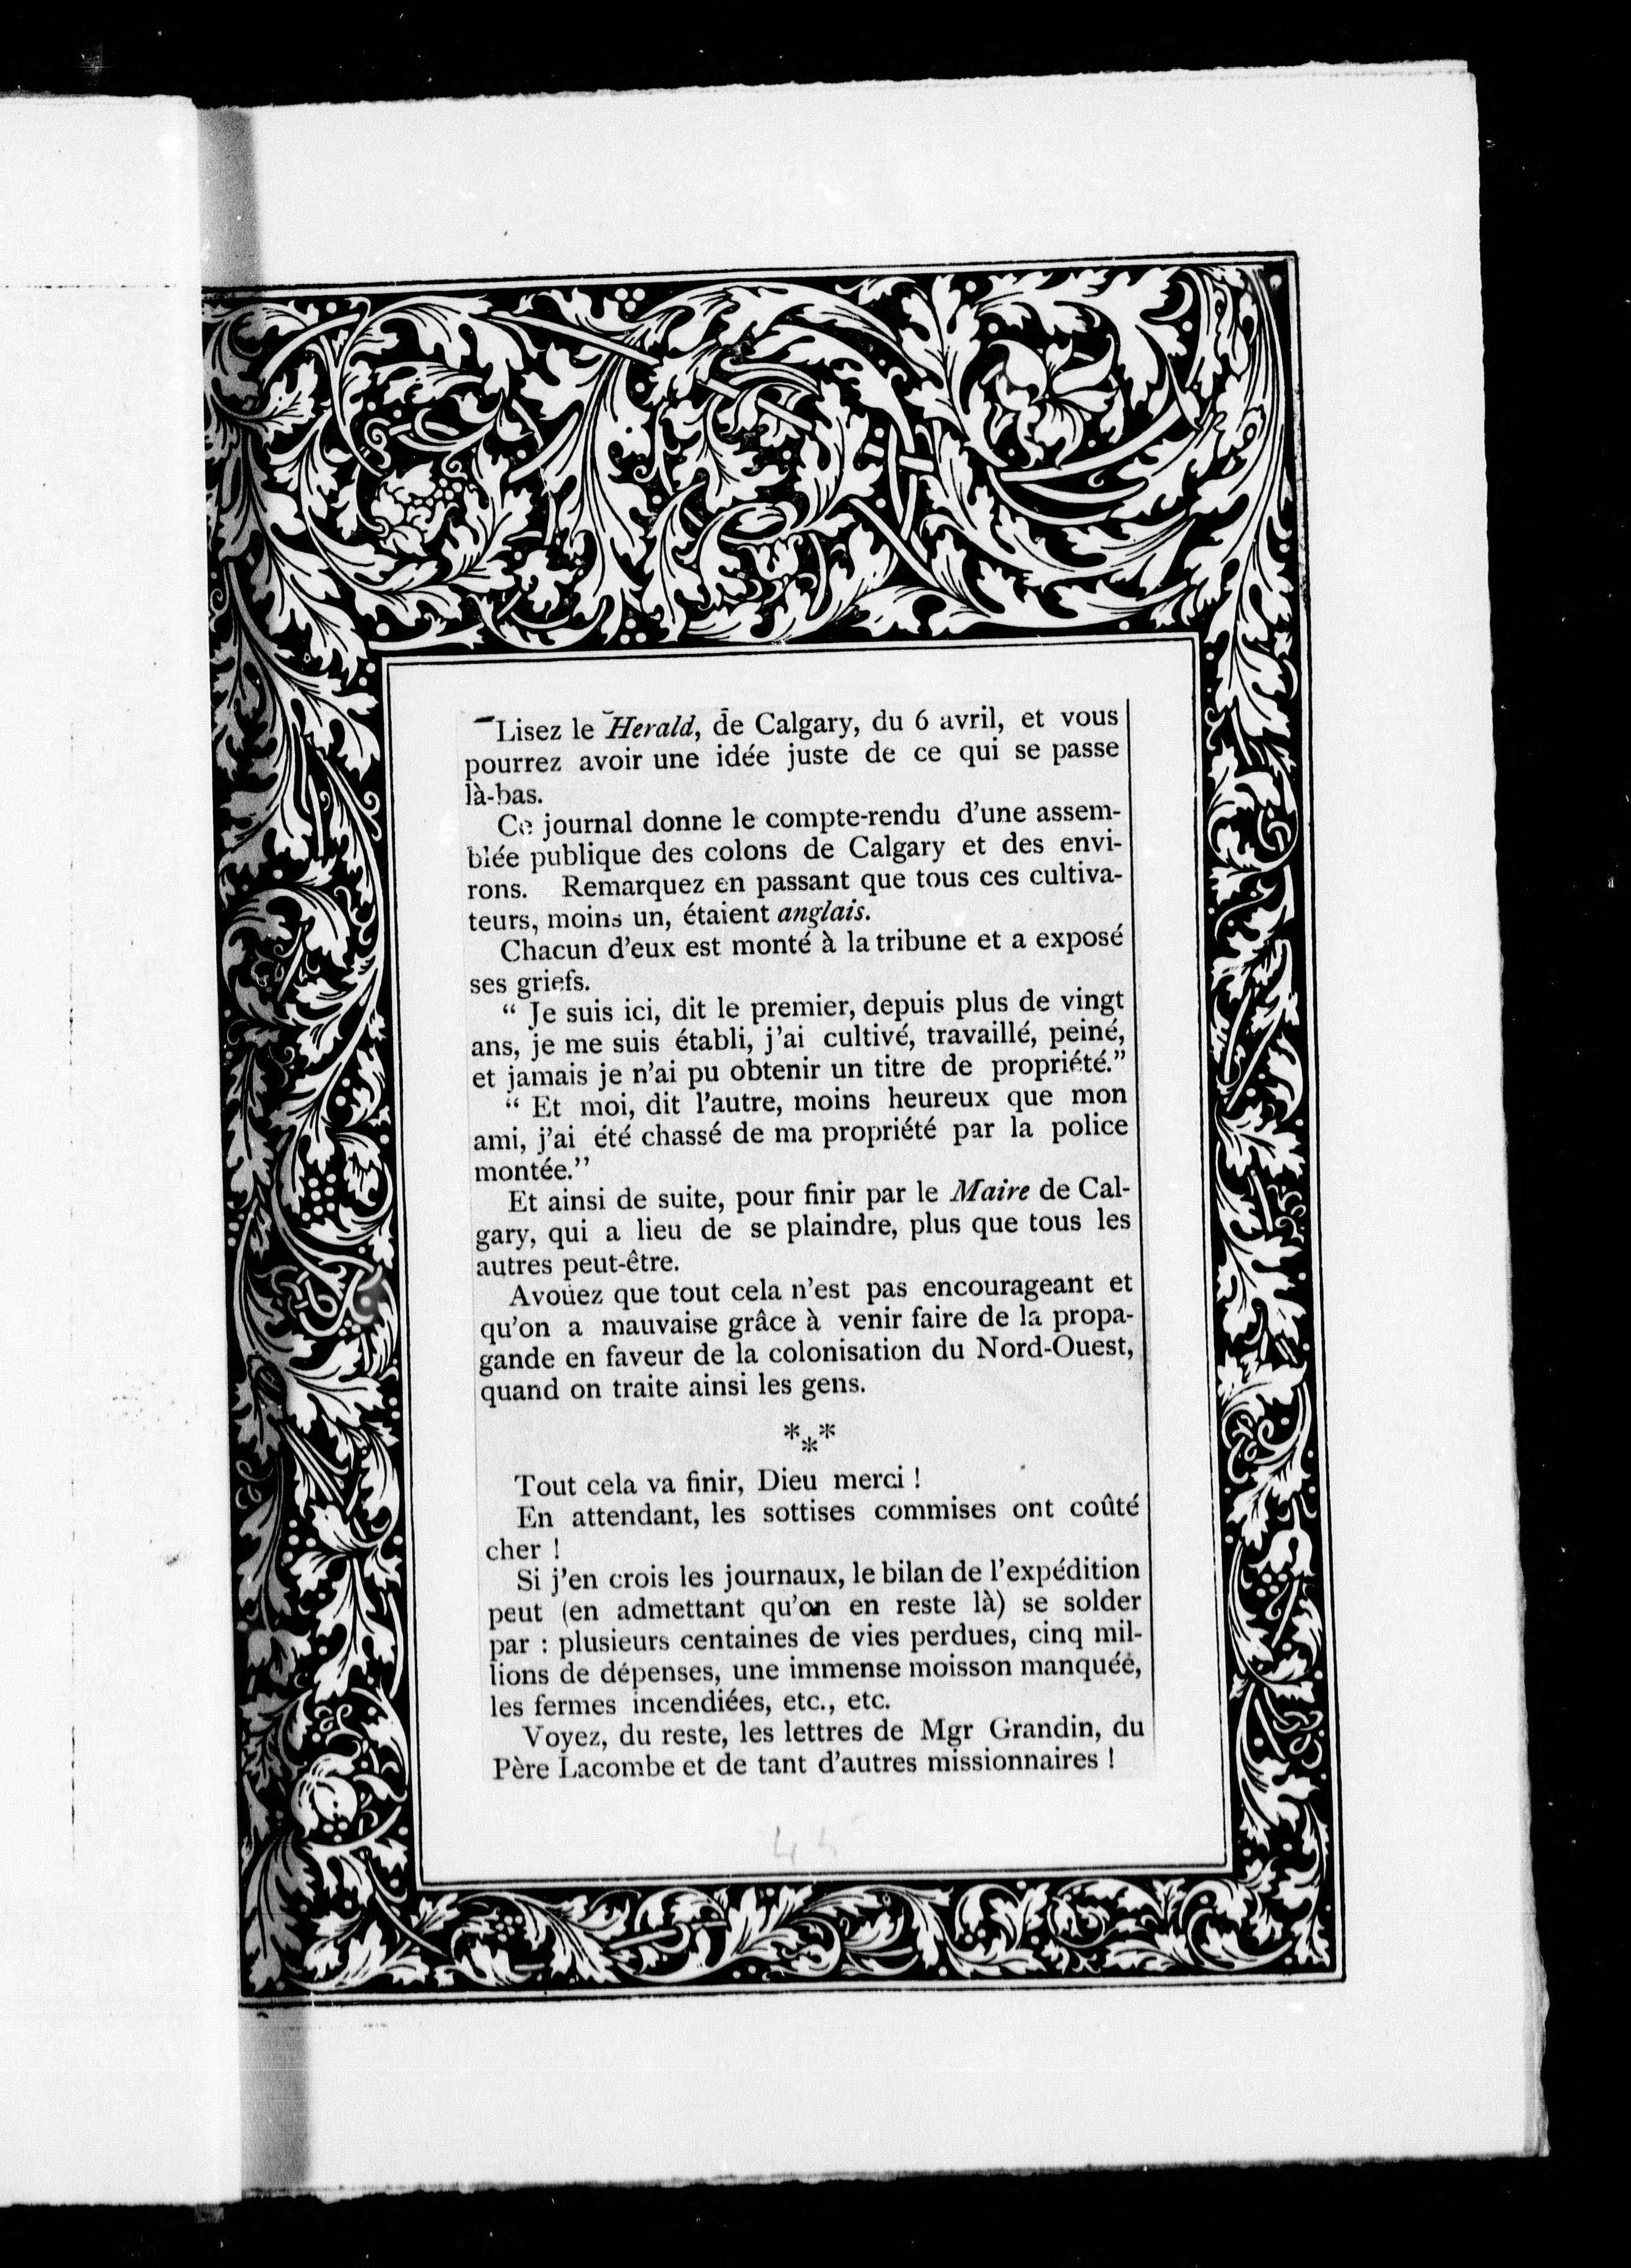 Lisez le Herald, de Calgary, du 6 avril, et vous
pourrez avoir une idée juste de ce qui se passe
là-bas.
Ce journal donne le compte-rendu d'une assem-
blée publique des colons de Calgary et des envi-
rons. Remarquez en passant que tous ces cultiva-
teurs, moins un, étaient anglais.
Chacun d'eux est monté à la tribune et a exposé
ses griefs.
“ Je suis ici, dit le premier, depuis plus de vingt
ans, je me suis établi, j'ai cultivé, travaillé, peiné,
et jamais je n'ai pu obtenir un titre de propriété.”
“ Et moi, dit l'autre, moins heureux que mon
ami, j'ai été chassé de ma propriété par la police
montée.”
Et ainsi de suite, pour finir par le Maire de Cal-
gary, qui a lieu de se plaindre, plus que tous les
autres peut-être.
Avouez que tout cela n'est pas encourageant et
qu'on a mauvaise grâce à venir faire de la propa-
gande en faveur de la colonisation du Nord-Ouest,
quand on traite ainsi les gens.
***
Tout cela va finir, Dieu merci !
En attendant, les sottises commises ont coûté
cher !
Si j'en crois les journaux, le bilan de l'expédition
peut (en admettant qu'on en reste là) se solder
par : plusieurs centaines de vies perdues, cinq mil-
lions de dépenses, une immense moisson manquée,
les fermes incendiées, etc., etc.
Voyez, du reste, les lettres de Mgr Grandin, du
Père Lacombe et de tant d'autres missionnaires !